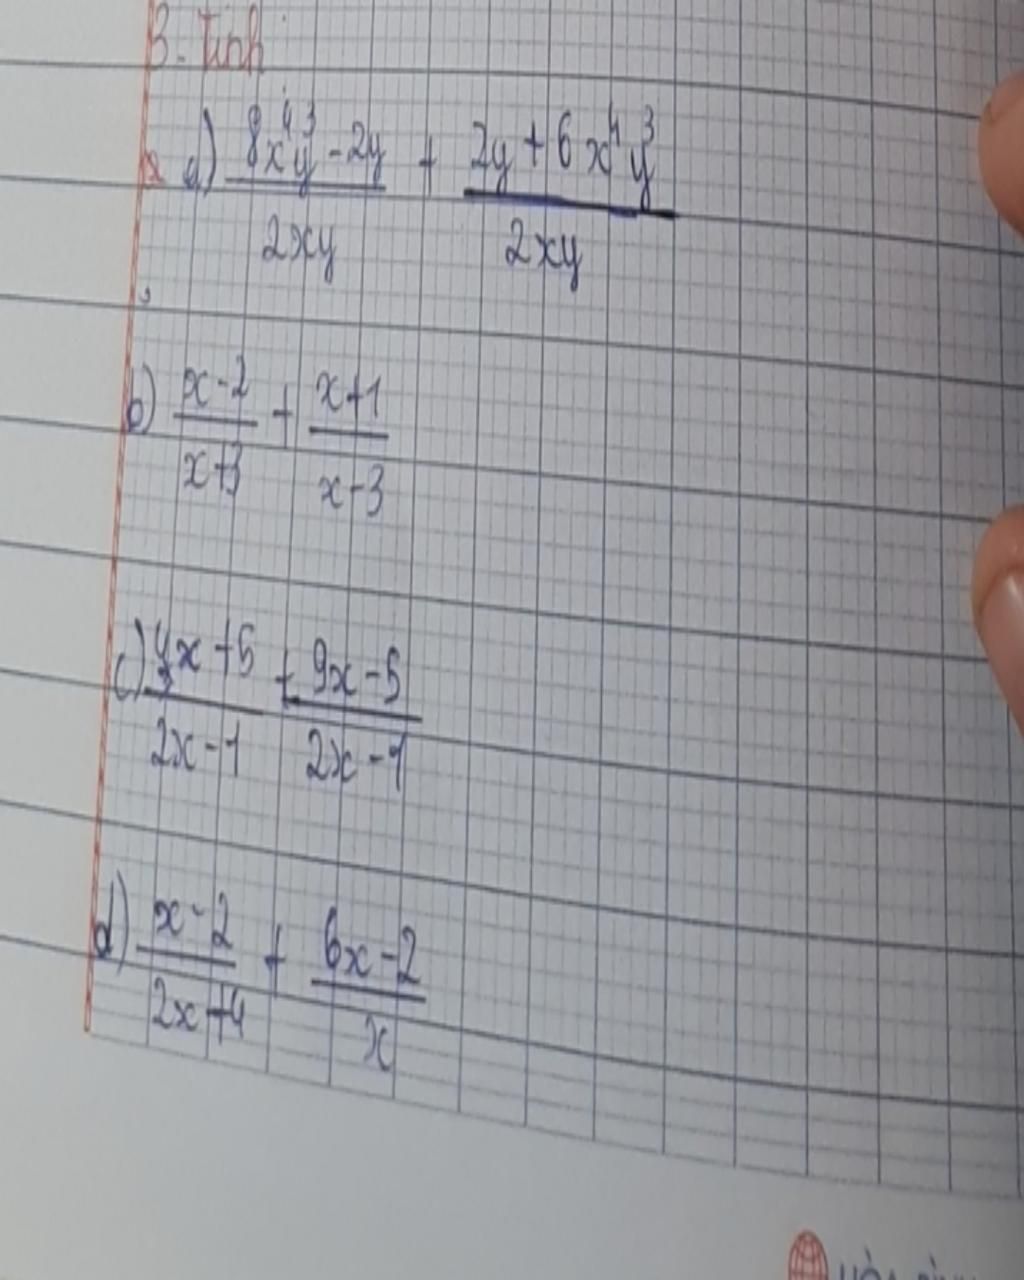 3. Tính
a) \frac{8x^4y^3 - 2y}{2xy} + \frac{2y + 6x^4y^3}{2xy}
b) \frac{x-2}{x+3} + \frac{x+1}{x-3}
c) \frac{4x+5}{2x-1} + \frac{9x-5}{2x-1}
d) \frac{x-2}{2x+4} + \frac{6x-2}{x}